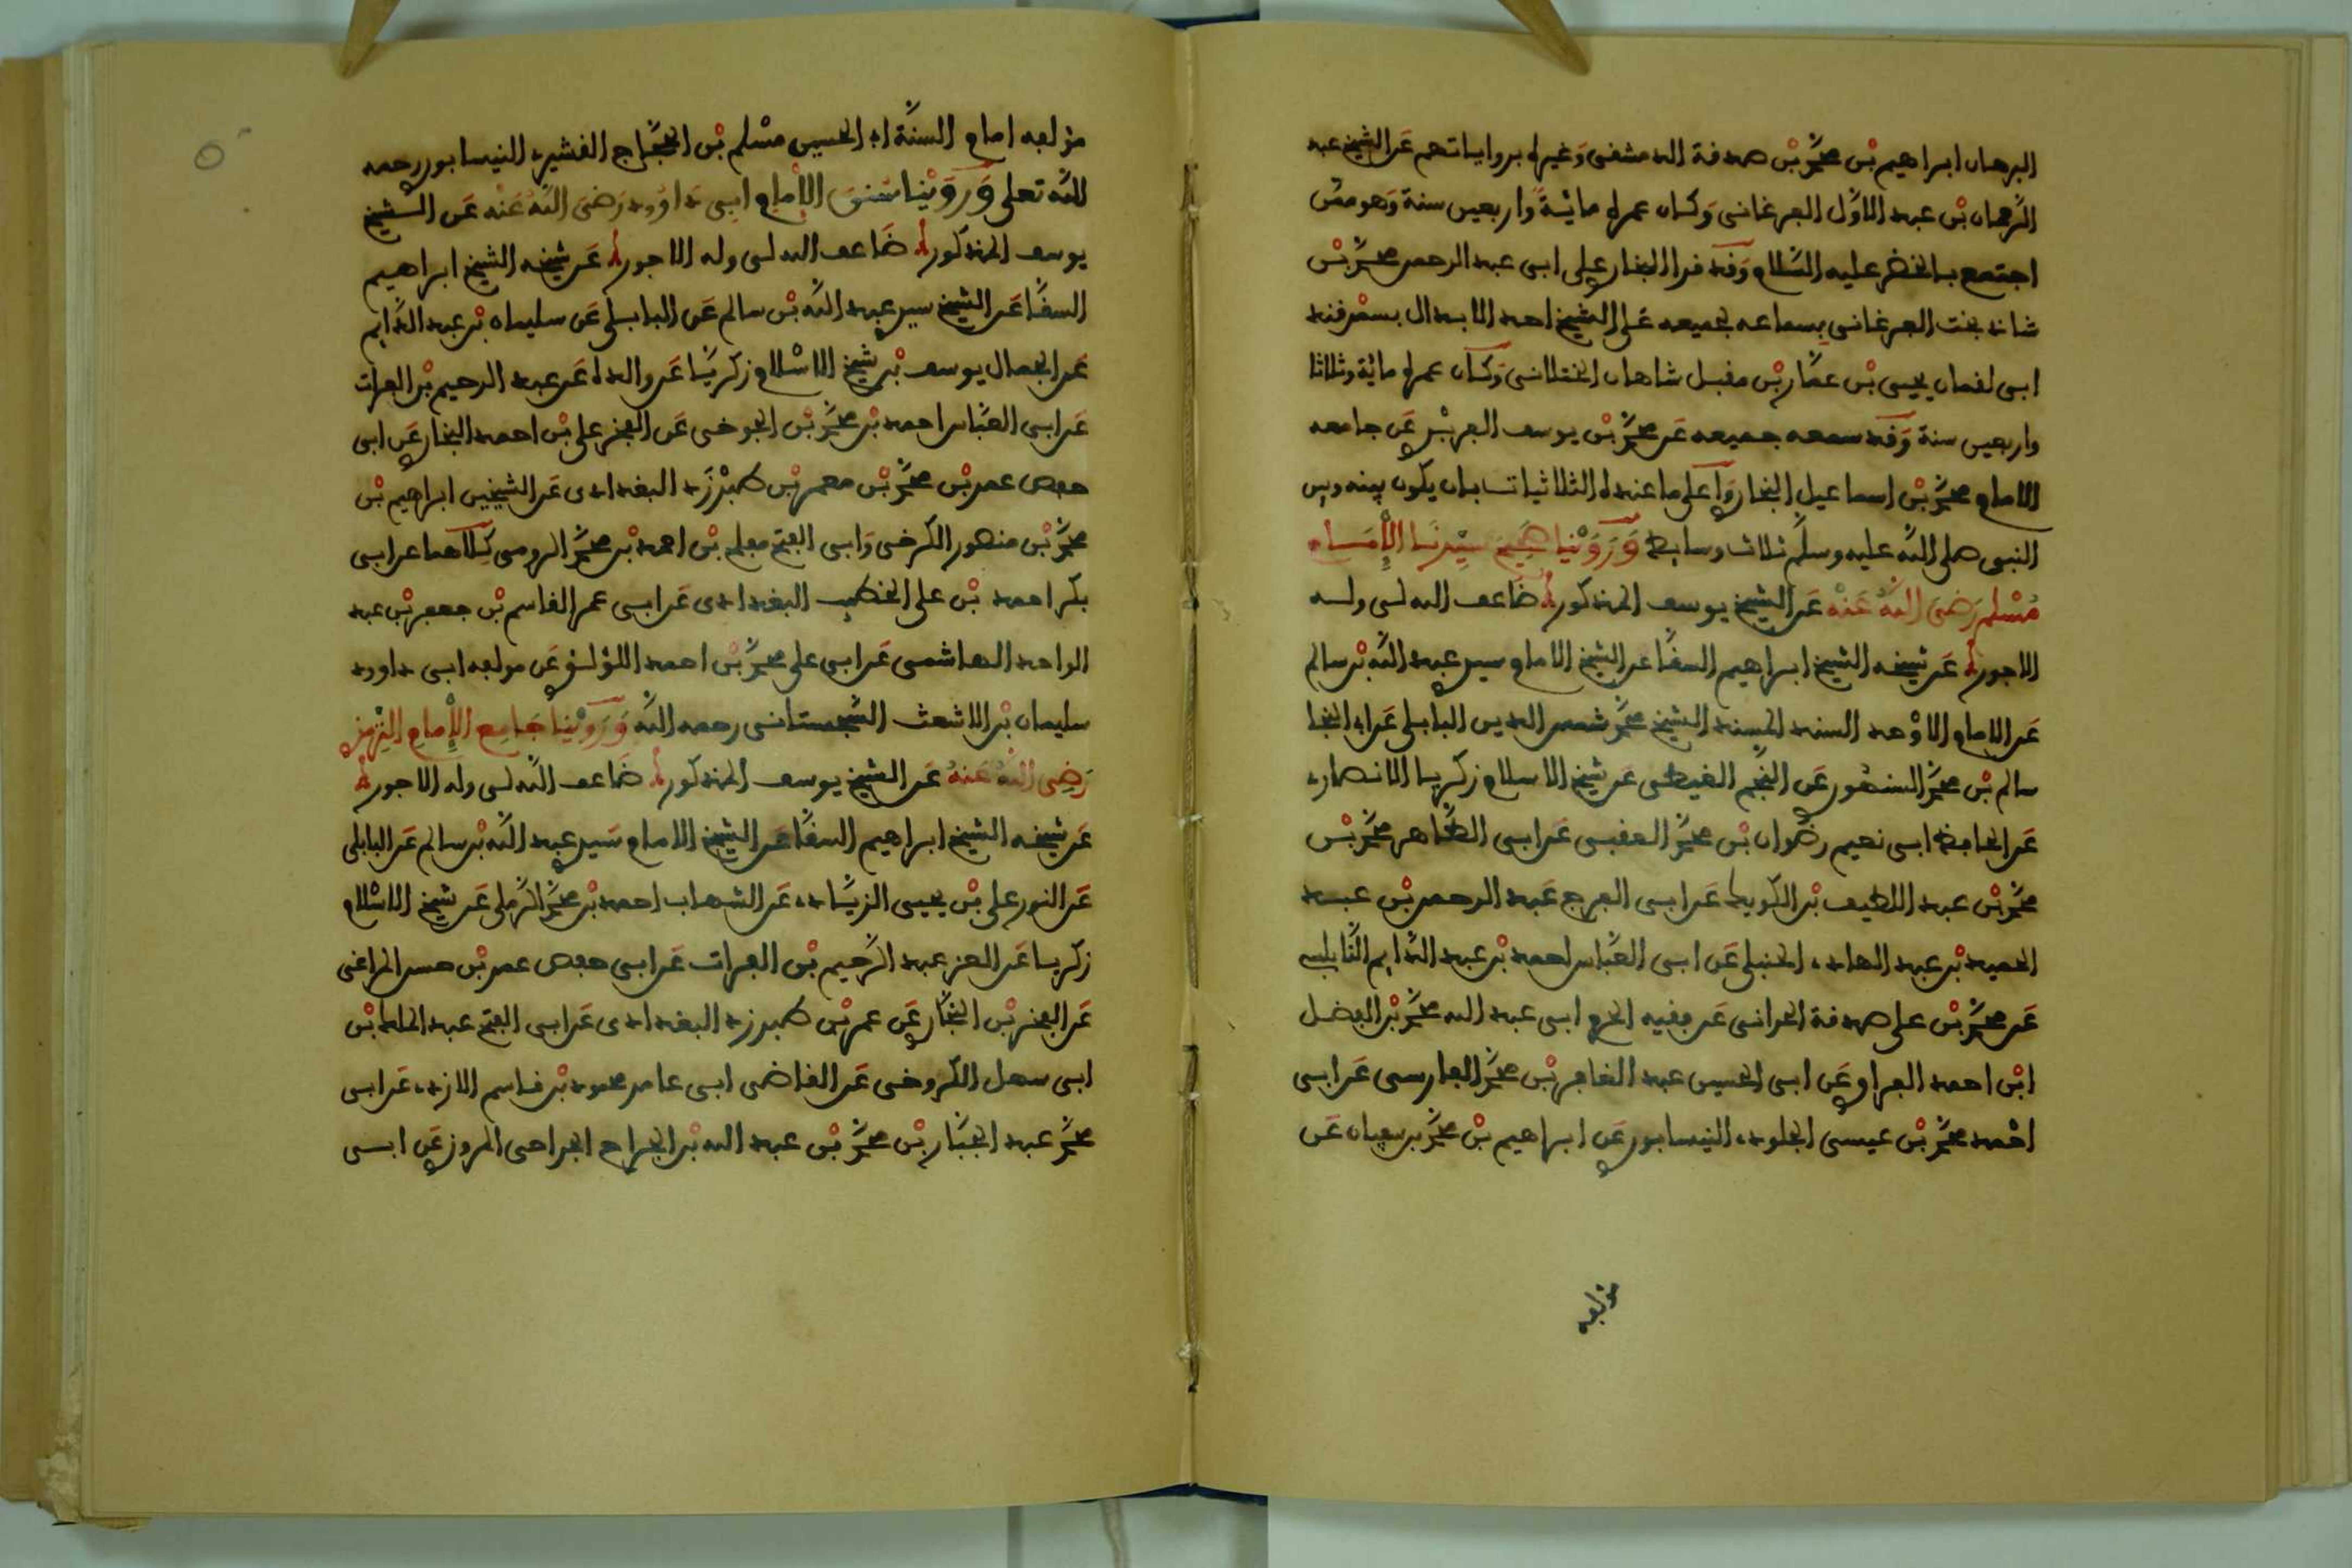 البرهان ابراهيم بْن محمَّد بْن صدفة الدمشفى وَغيره برواياتهم عَن الشيخ عبد
الرَّحمان بْن عبد الاوَّل الفرغانى وَكان عمره مائةً واربعين سنة وَهو ممن
اجتمع بالخضر عليه السَّلام وَفد فرا البخارى على ابى عبد الرحمن محمَّد بْن
شاذ بخت الفرغانى بسماعه لجميعه عَلى الشيخ احد الابدال بسمْرفند
ابى لفمان يحيى بْن عمَّار بْن مفبل شاهان الختلانى وَكان عمره مائة وثلاثا
واربعين سنة وَفد سمعه جميعه عَن محمَّد بْن يوسف الفربْرى عَن جامعه
الامام محمَّد بْن اسماعيل البخارى وَاعلى ما عنده الثلاثيات بان يكون بينه وبين
النبى صلى اللَّه عليه وسلَّم ثلاث وسايط وَرَوَيْنا صَحِيحَ سيِّدِنَا الإِمَام
مُسْلم رَضىَ اللَّهُ عَنْهُ عَن الشيخ يوسف المذكور ضاعف الله لى وله
الاجور عَن شيخه الشيخ ابراهيم السفَّا عن الشيخ الامام سيدى عبد اللَّه بْن سالم
عَن الامام الاوْحد السند المسند الشيخ محمَّد شمس الدين البابلى عَن ابى النجا
سالم بْن محمَّد السنهُورى عَن النجْم الغيطى عَن شيخ الاسلام زكريا الانصارى
عَن الحافظ ابى نعيم رضوان بْن محمَّد العفبى عَن ابى الطَّاهر محمَّد بْن
محمَّد بْن عبد اللطيف بْن الكويك عَن ابى الفرج عَبد الرحمن بْن عبد
الحميد بْن عبد الهادى الحنبلى عَن ابى العبَّاس احمد بْن عبد الدَّايم النَّابلسى
عَن محمَّد بْن على صدفة الحرانى عَن ففيه الحرم ابى عبد الله محمَّد بْن الفضل
ابْن احمد الفراوى عَن ابى الحسين عبد الغافر بْن محمَّد الفارسى عَن ابى
احْمد محمَّد بْن عيسى الجلودى النيسابورى عَن ابراهيم بْن محمَّد بن سفيان عَن
مؤلفه
مؤلفه امام السنَّة ابى الحسين مسْلم بْن الحجَّاج الفشيرى النيسابورى رحمه
اللَّه تعلى وَرَوَيْنا سُنن الإمام ابِى دَاوُود رَضىَ اللَّهُ عَنْه عَن الشيخ
يوسف المذكور ضَاعف الله لى وله الاجور عَن شيخه الشيخ ابراهيم
السفَّا عَن الشيخ سيدى عبد اللَّه بْن سالم عَن البابلى عَن سليمان بْن عبد الدَّايم
عَن الجمال يوسف بْن شيخ الاسْلام زكريَّا عَن والده عَن عبد الرحيم بْن الفرات
عَن ابى العبَّاس احمد بْن محمَّد بْن الجوخى عَن الفخر على بْن احمد البخارى عَن ابى
حفص عمر بْن محمَّد بْن معمر بْن طبرْزَد البغدادى عَن الشيخين ابراهيم بْن
محمَّد بْن منصور الكرخى وَابى الفتح مفلح بْن احمد بْن محمَّد الرومى كِلاهما عن ابى
بكر احمد بْن على الخطيب البغدادى عَن ابى عمر الفاسم بْن جعفر بْن عبد
الواحد الهاشمى عَن ابى على محمَّد بْن احمد اللؤلؤى عَن مولفه ابى داوود
سليمان بْن الاشعث السَّجستانى رحمه اللَّه وَرَوَيْنا جَامِع الإِمامِ التِّرْمِذى
رَضِى اللَّهُ عَنهُ عَن الشيخ يوسف المذكور ضاعف اللَّه لى وله الاجور
عَن شيخه الشيخ ابراهيم السفَّا عَن الشيخ الامام سَيدى عبد اللَّه بْن سالم عَن البابلى
عَن النور على بْن يحيى الزيَّادى عَن الشهاب احمد بْن محمَّد الرَّملى عَن شيخ الاسْلام
زكريا عَن العز عبد الرَّحيم بْن الفرات عَن ابى حفص عمر بْن حسن المراغى
عَن الفخر بْن البخَّارى عَن عمر بْن طبرزد البغدادى عَن ابى الفتح عبد الملك بْن
ابى سهل الكروخى عَن الفاضى ابى عامر محمود بْن فاسم الازدى عَن ابى
محمَّد عبد الجبَّار بْن محمَّد بْن عبد الله بْن الجراح الجراحى المروزى عَن ابى